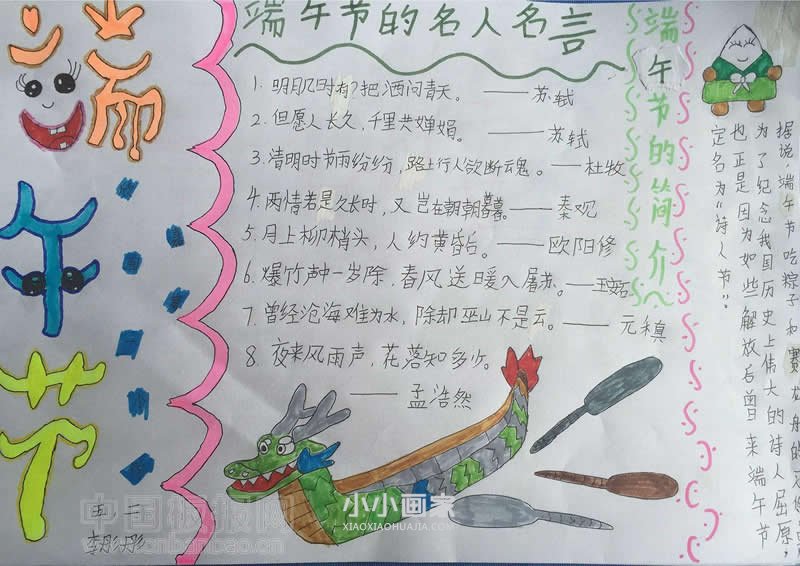 端午节
端午节的名人名言
1. 明月几时有?把洒问青天。——苏轼
2. 但愿人长久，千里共婵娟。——苏轼
3. 清明时节雨纷纷，路上行人欲断魂。——杜牧
4. 两情若是久长时，又岂在朝朝暮暮。——秦观
5. 月上柳梢头，人约黄昏后。——欧阳修
6. 爆竹声中一岁除，春风送暖入屠苏。——王安石
7. 曾经沧海难为水，除却巫山不是云。——元稹
8. 夜来风雨声，花落知多少。
——孟浩然
端午节的简介
据说，端午节吃粽子和赛龙舟的
为了纪念我国历史上伟大的诗人屈原，
也正是因为如些解放后曾来端午节
定名为“诗人节”
小小画家
XIAOXIAOHUAJIA.COM
中国板报网
www.cnbanbao.cn